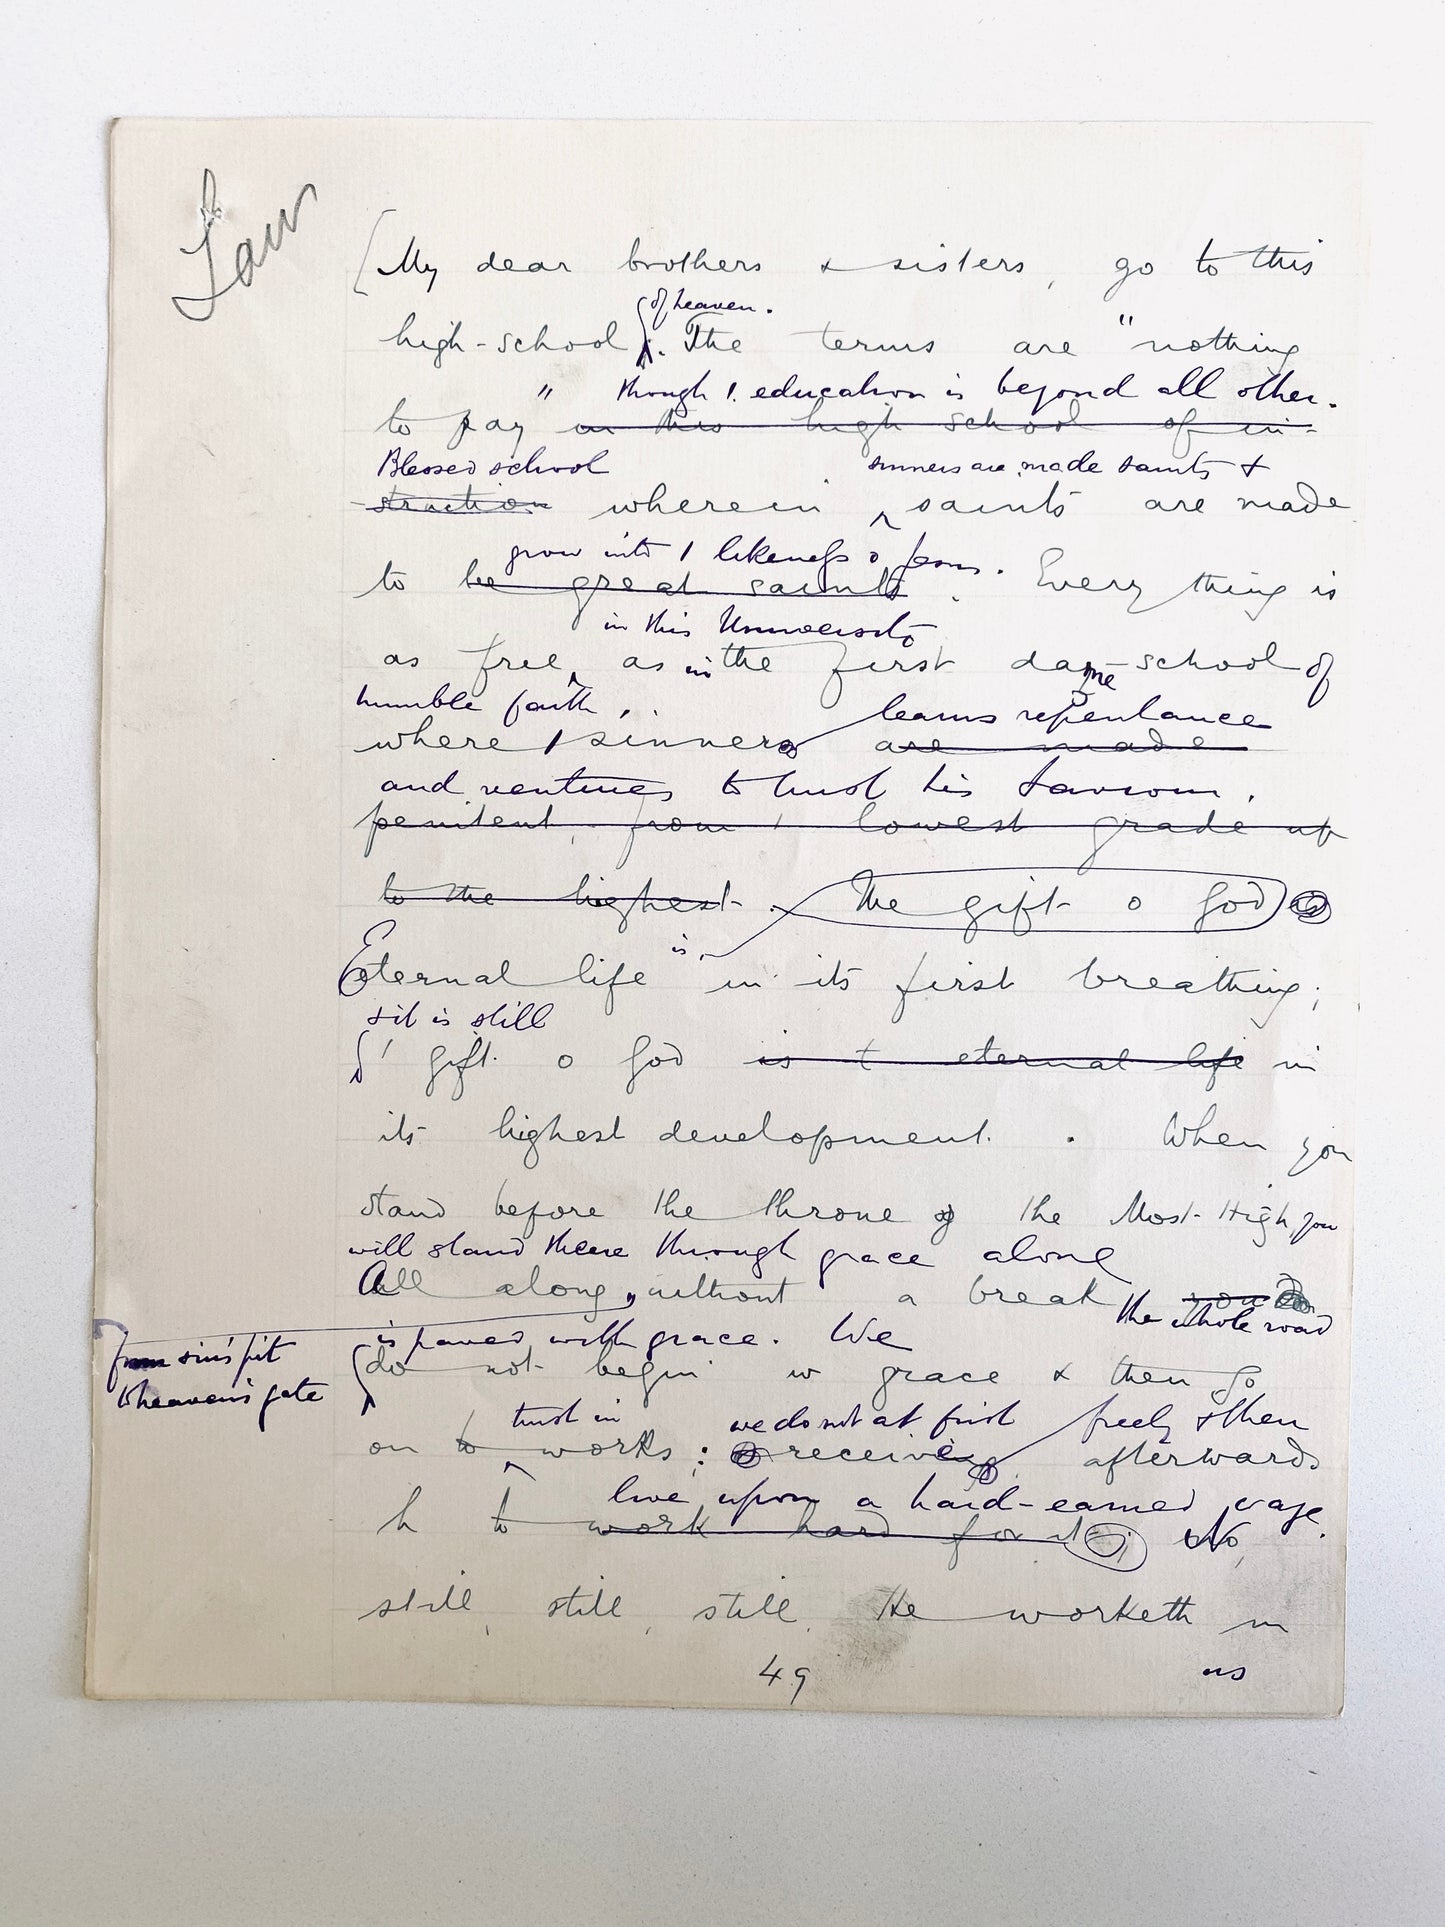 Law
My dear brothers & sisters, go to this
of heaven.
high-school. The terms are "nothing
" though 1. education is beyond all other.
to pay in this high school of in-
Blessed school sinners are made saints &
-struction wherein ^ saints are made
grow into / likeness o Jesus.
to be great saints. Every thing is
in this University
as free, as in the first dame-school of
humble faith, learns repentance
where / sinner are made
and ventures to trust his Saviour.
penitent, from / lowest grade up
to the highest. The gift o God
is
Eternal life in its first breathing;
& it is still
/ gift o God is t eternal life in
its highest development. When you
stand before the throne of the Most High, you
will stand there through grace alone
All along, without a break
the whole road
from sin's pit
to heaven's gate
is paved with grace. We
do not begin w grace & then go
trust in we do not at first freely & then
on to works; receive afterwards
live upon a hard-earned wage.
h to work hard for it; No,
still, still, still, He worketh in
49 us